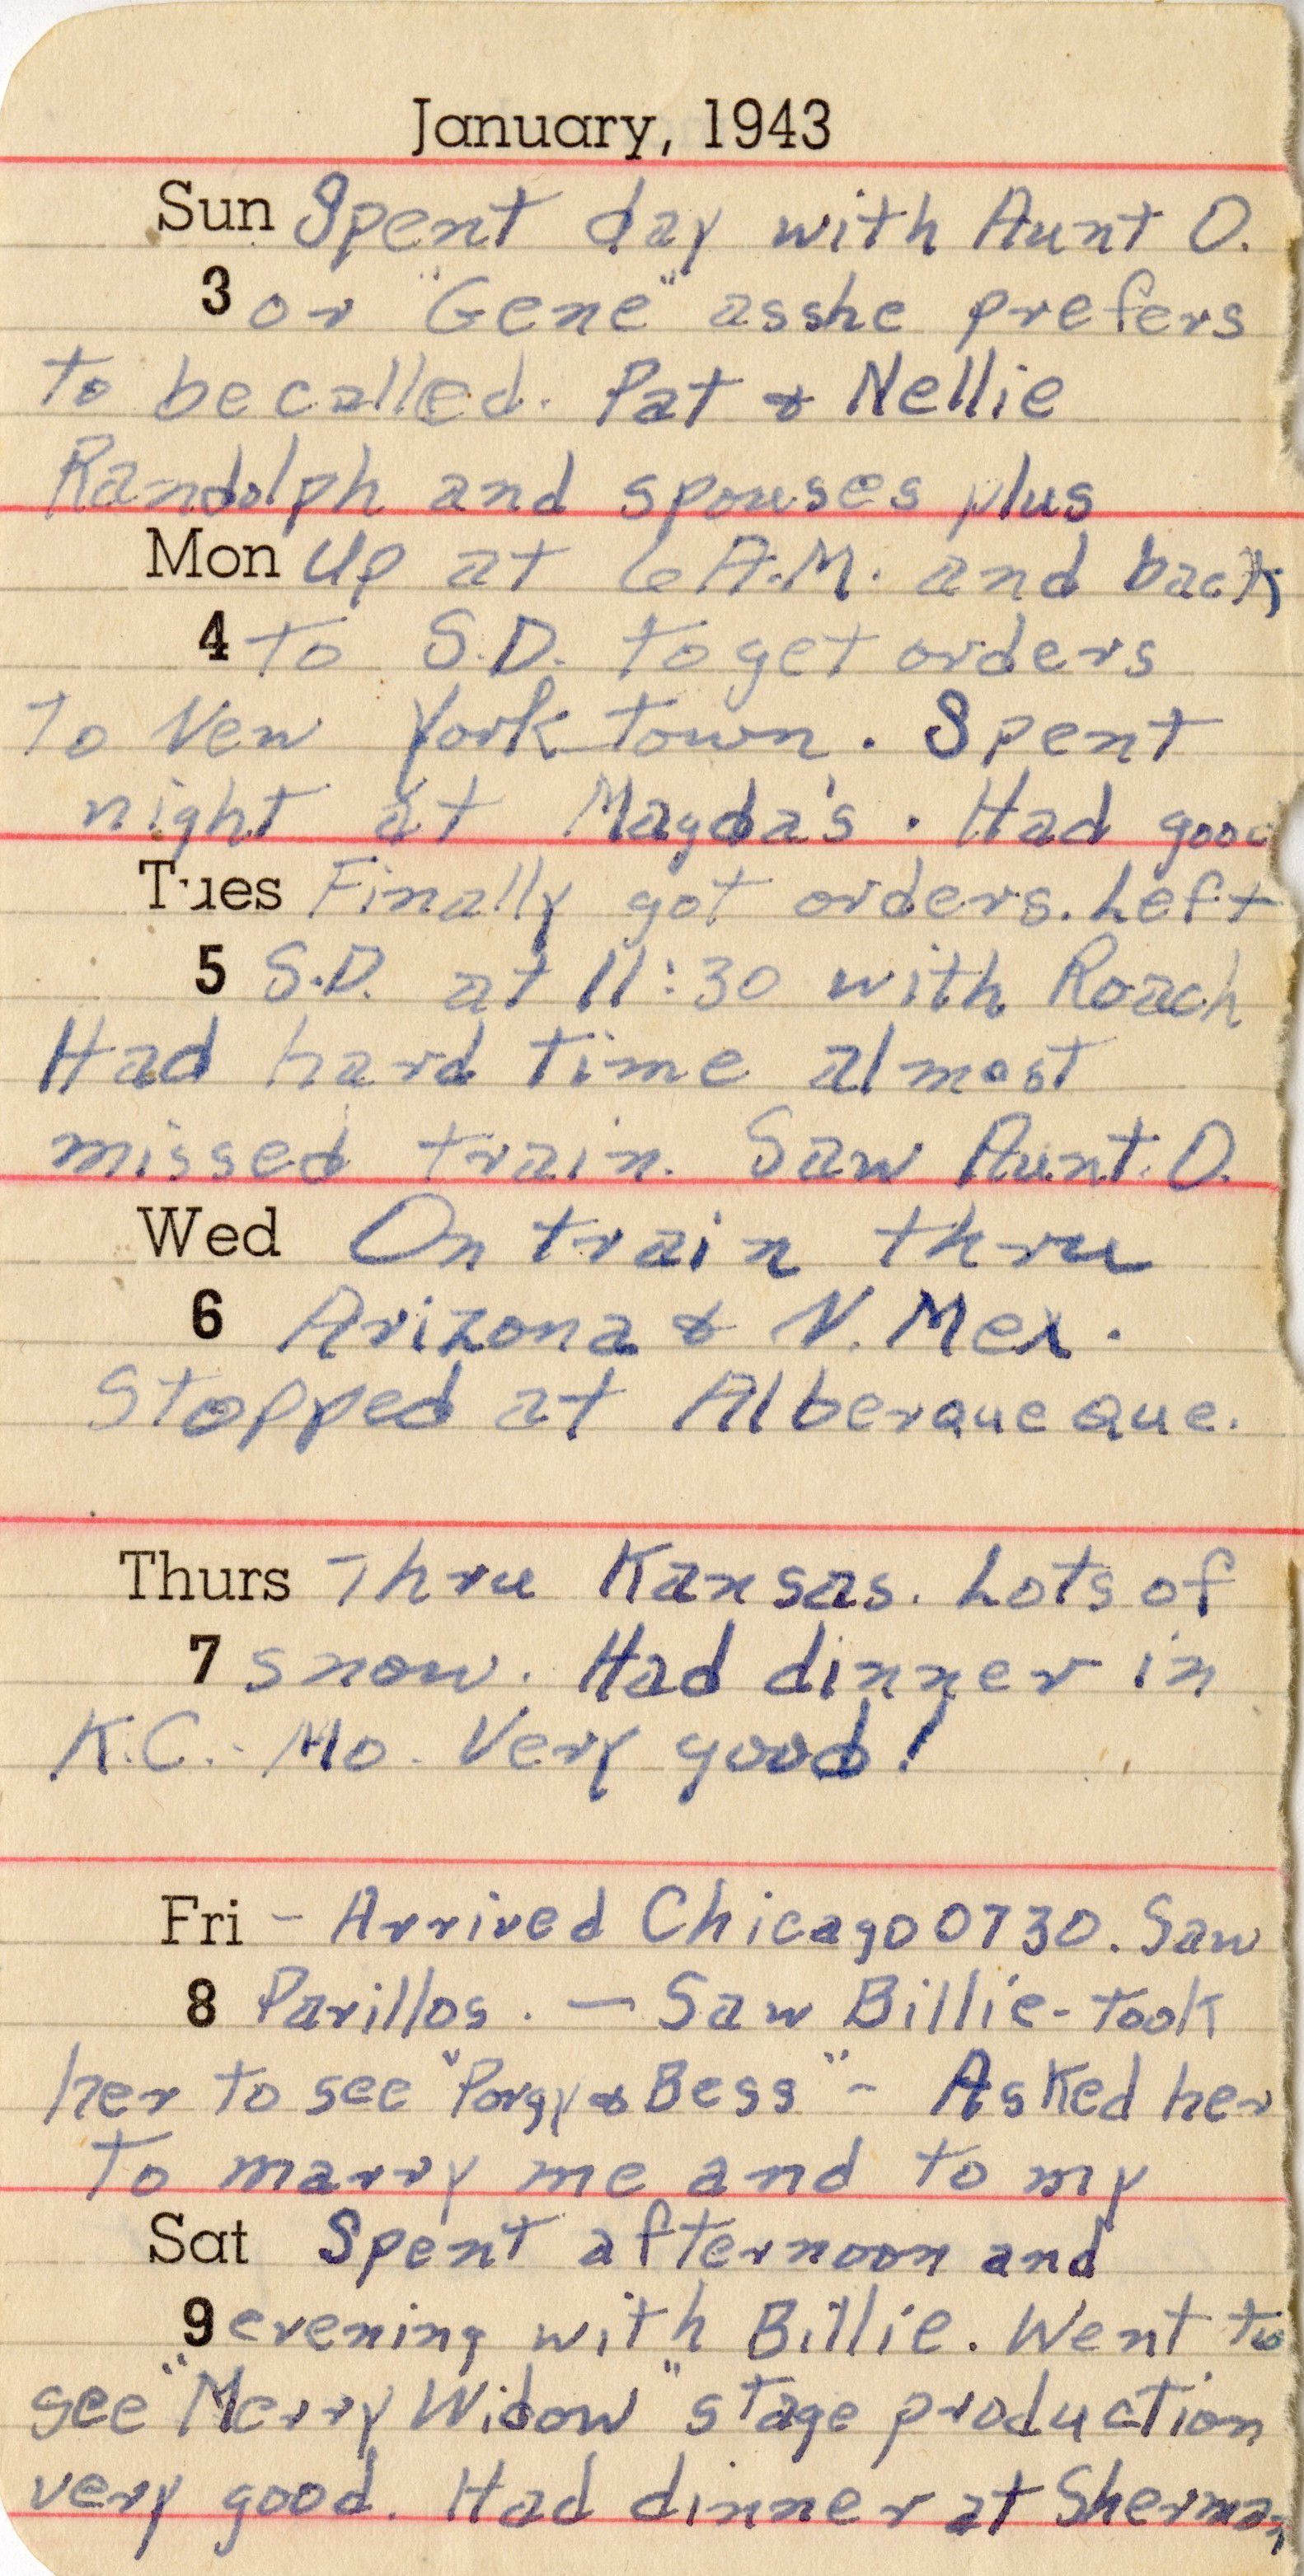 January, 1943
Sun Spent day with Aunt O.
3 or "Gene" as she prefers
to be called. Pat & Nellie
Randolph and spouses plus
Mon Up at 6 A.M. and back
4 to S.D. to get orders
to New Yorktown. Spent
night at Magda's. Had good
Tues Finally got orders. Left
5 S.D. at 11:30 with Roach
Had hard time almost
missed train. Saw Aunt. O.
Wed On train thru
6 Arizona & N. Mex.
Stopped at Alberqueque.
Thurs Thru Kansas. Lots of
7 snow. Had dinner in
K.C. - Mo. Very good!
Fri - Arrived Chicago 0730. Saw
8 Parillos. — Saw Billie - took
her to see "Porgy & Bess" - Asked her
to marry me and to my
Sat Spent afternoon and
9 evening with Billie. Went to
see "Merry Widow" stage production
very good. Had dinner at Sherman